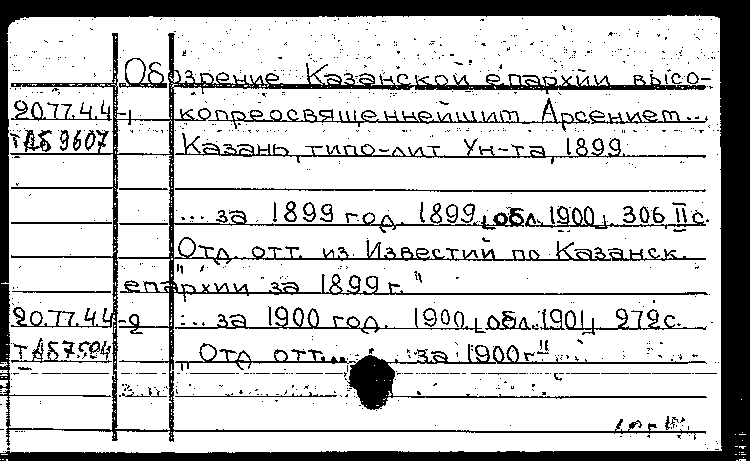 Обозрение Казанской епархии высо-
20.77.4.4-1 копреосвященнейшим Арсением...
ТАБ 9607 Казань, типо-лит Ун-та, 1899.
... за 1899 год. 1899 [обл. 1900], 306, II с.
Отд. отт. из Известий по Казанск.
епархии за 1899 г."
20.77.4.4-2 ... за 1900 год. 1900 [обл. 1901] 272 с.
ТАБ7594 „Отд отт... за 1900 г"